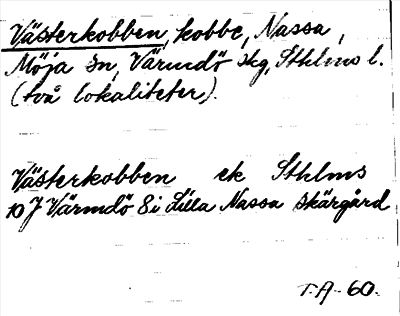 Västerkobben, kobbe, Nassa,
Möja sn, Värmdö skg, Sthlms l.
(två lokaliteter).
Västerkobben ek Sthlms
10J Värmdö 8i Lilla Nassa skärgård
T.A-60.